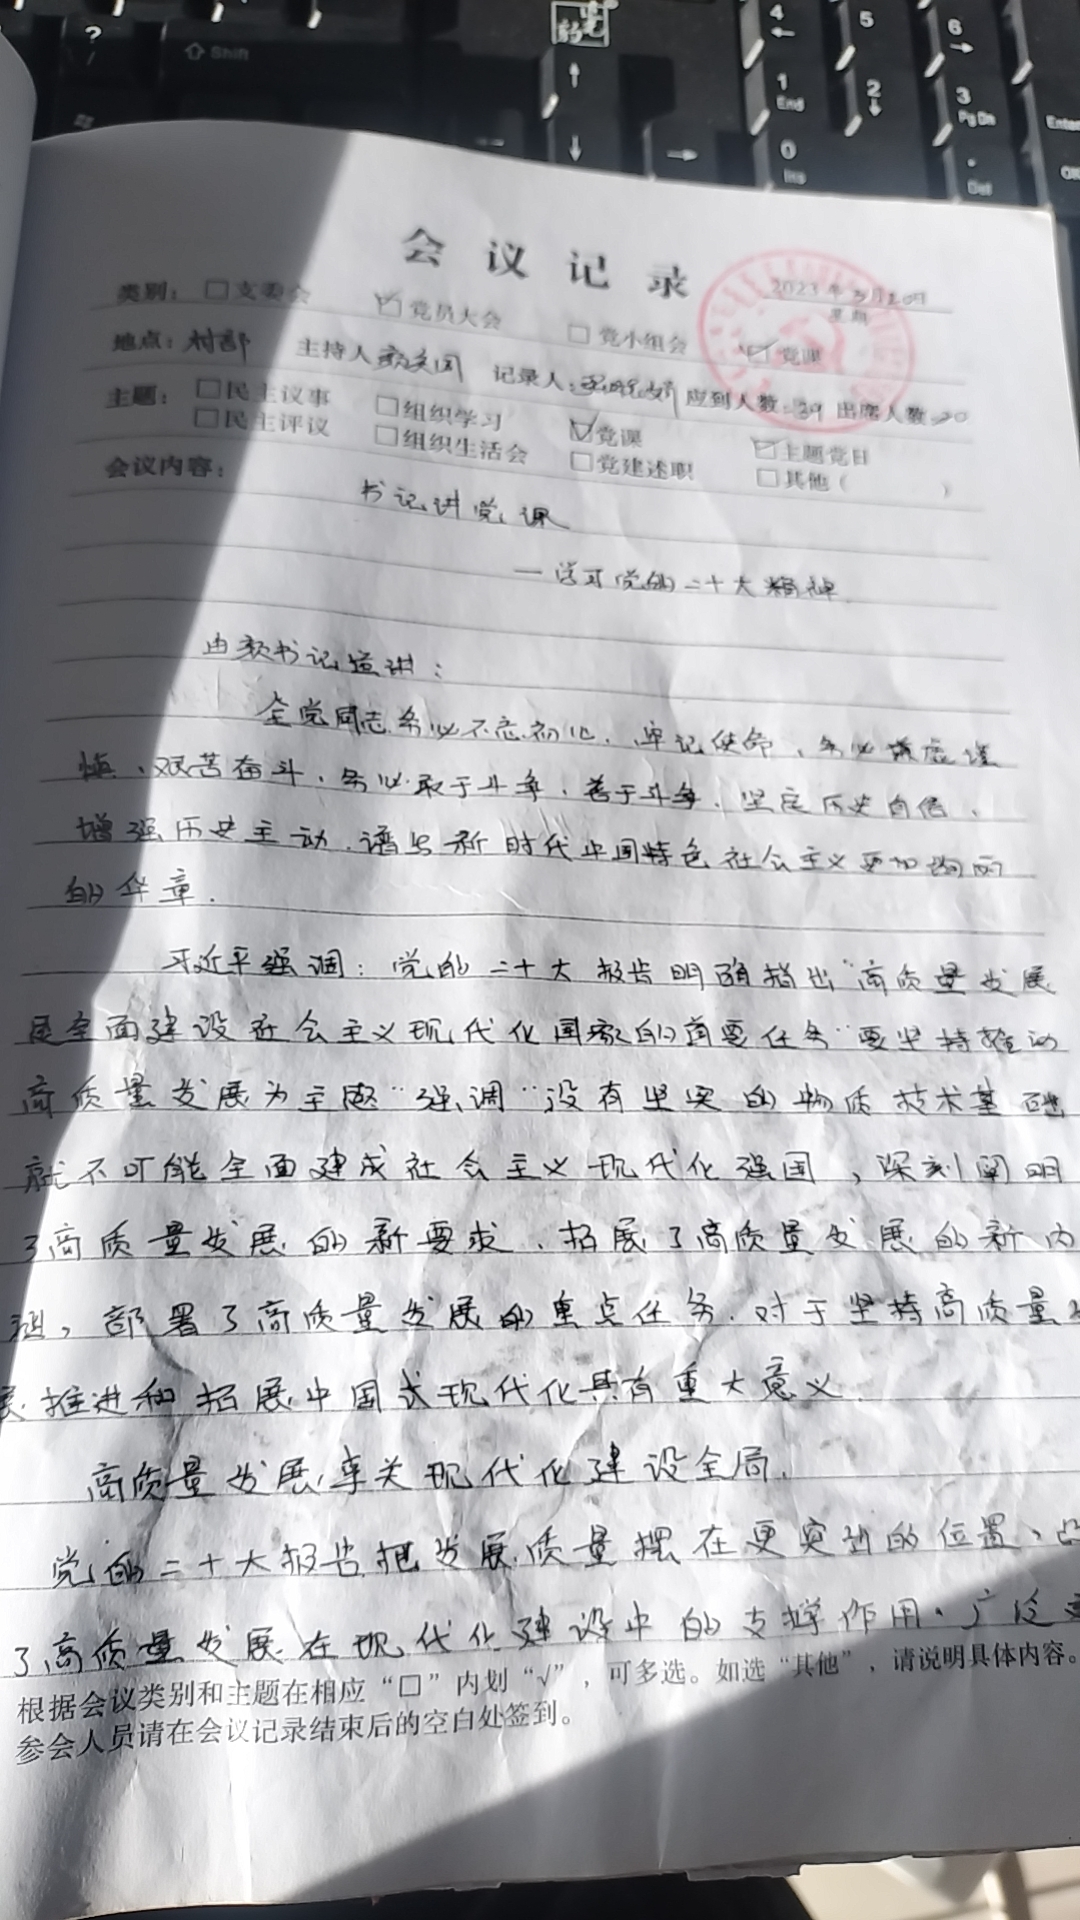 ?
/
⇧ Shift
4
←
5
6
→
↑
1
End
2
↓
3
Pg Dn
Enter
↓
→
0
Ins
.
Del
会议记录
2023年3月20日
星期
类别：□支委会 ☑党员大会 □党小组会 ☑党课
地点：村部 主持人 记录人： 应到人数：39 出席人数：30
主题：□民主议事 □组织学习 ☑党课 ☑主题党日
□民主评议 □组织生活会 □党建述职 □其他（ ）
会议内容：
书记讲党课
—学习党的二十大精神
由颜书记宣讲：
全党同志务必不忘初心、牢记使命，务必谦虚谨
慎、艰苦奋斗，务必敢于斗争、善于斗争，坚定历史自信，
增强历史主动，谱写新时代中国特色社会主义更加绚丽
的华章．
习近平强调：党的二十大报告明确指出“高质量发展
是全面建设社会主义现代化国家的首要任务”要坚持推动
高质量发展为主题“强调“没有坚实的物质技术基础
就不可能全面建成社会主义现代化强国，深刻阐明
了高质量发展的新要求，拓展了高质量发展的新内
涵，部署了高质量发展的重点任务．对于坚持高质量
展推进和拓展中国式现代化具有重大意义．
高质量发展事关现代化建设全局．
党的二十大报告把发展质量摆在更突出的位置、凸
了高质量发展在现代化建设中的支撑作用．广泛
根据会议类别和主题在相应“□”内划“√”，可多选。如选“其他”，请说明具体内容。
参会人员请在会议记录结束后的空白处签到。